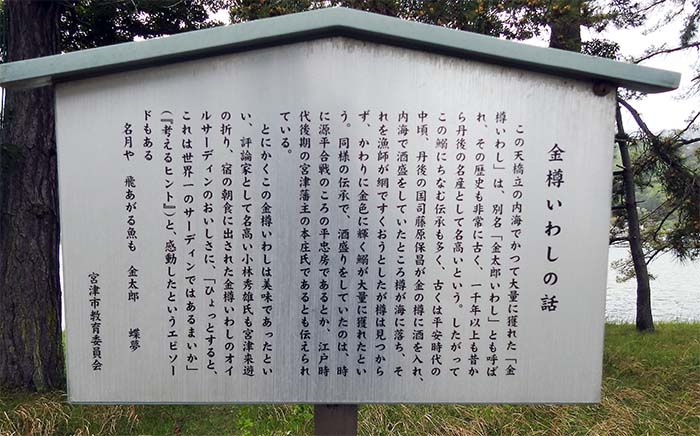 金樽いわしの話
この天橋立の内海でかつて大量に獲れた「金
樽いわし」は、別名「金太郎いわし」とも呼ば
れ、その歴史も非常に古く、一千年以上も昔か
ら丹後の名産として名高いという。したがって
この鰯にちなむ伝承も多く、古くは平安時代の
中頃、丹後の国司藤原保昌が金の樽に酒を入れ、
内海で酒盛をしていたところ樽が海に落ち、そ
れを漁師が網ですくおうとしたが樽は見つから
ず、かわりに金色に輝く鰯が大量に獲れたとい
う。同様の伝承で、酒盛りをしていたのは、時
に源平合戦のころの平忠房であるとか、江戸時
代後期の宮津藩主の本庄氏であるとも伝えられ
ている。
とにかくこの金樽いわしは美味であったとい
い、評論家として名高い小林秀雄氏も宮津来遊
の折り、宿の朝食に出された金樽いわしのオイ
ルサーディンのおいしさに、「ひょっとすると、
これは世界一のサーディンではあるまいか」
(『考えるヒント』)と、感動したというエピソー
ドもある
名月や 飛あがる魚も 金太郎 蝶夢
宮津市教育委員会